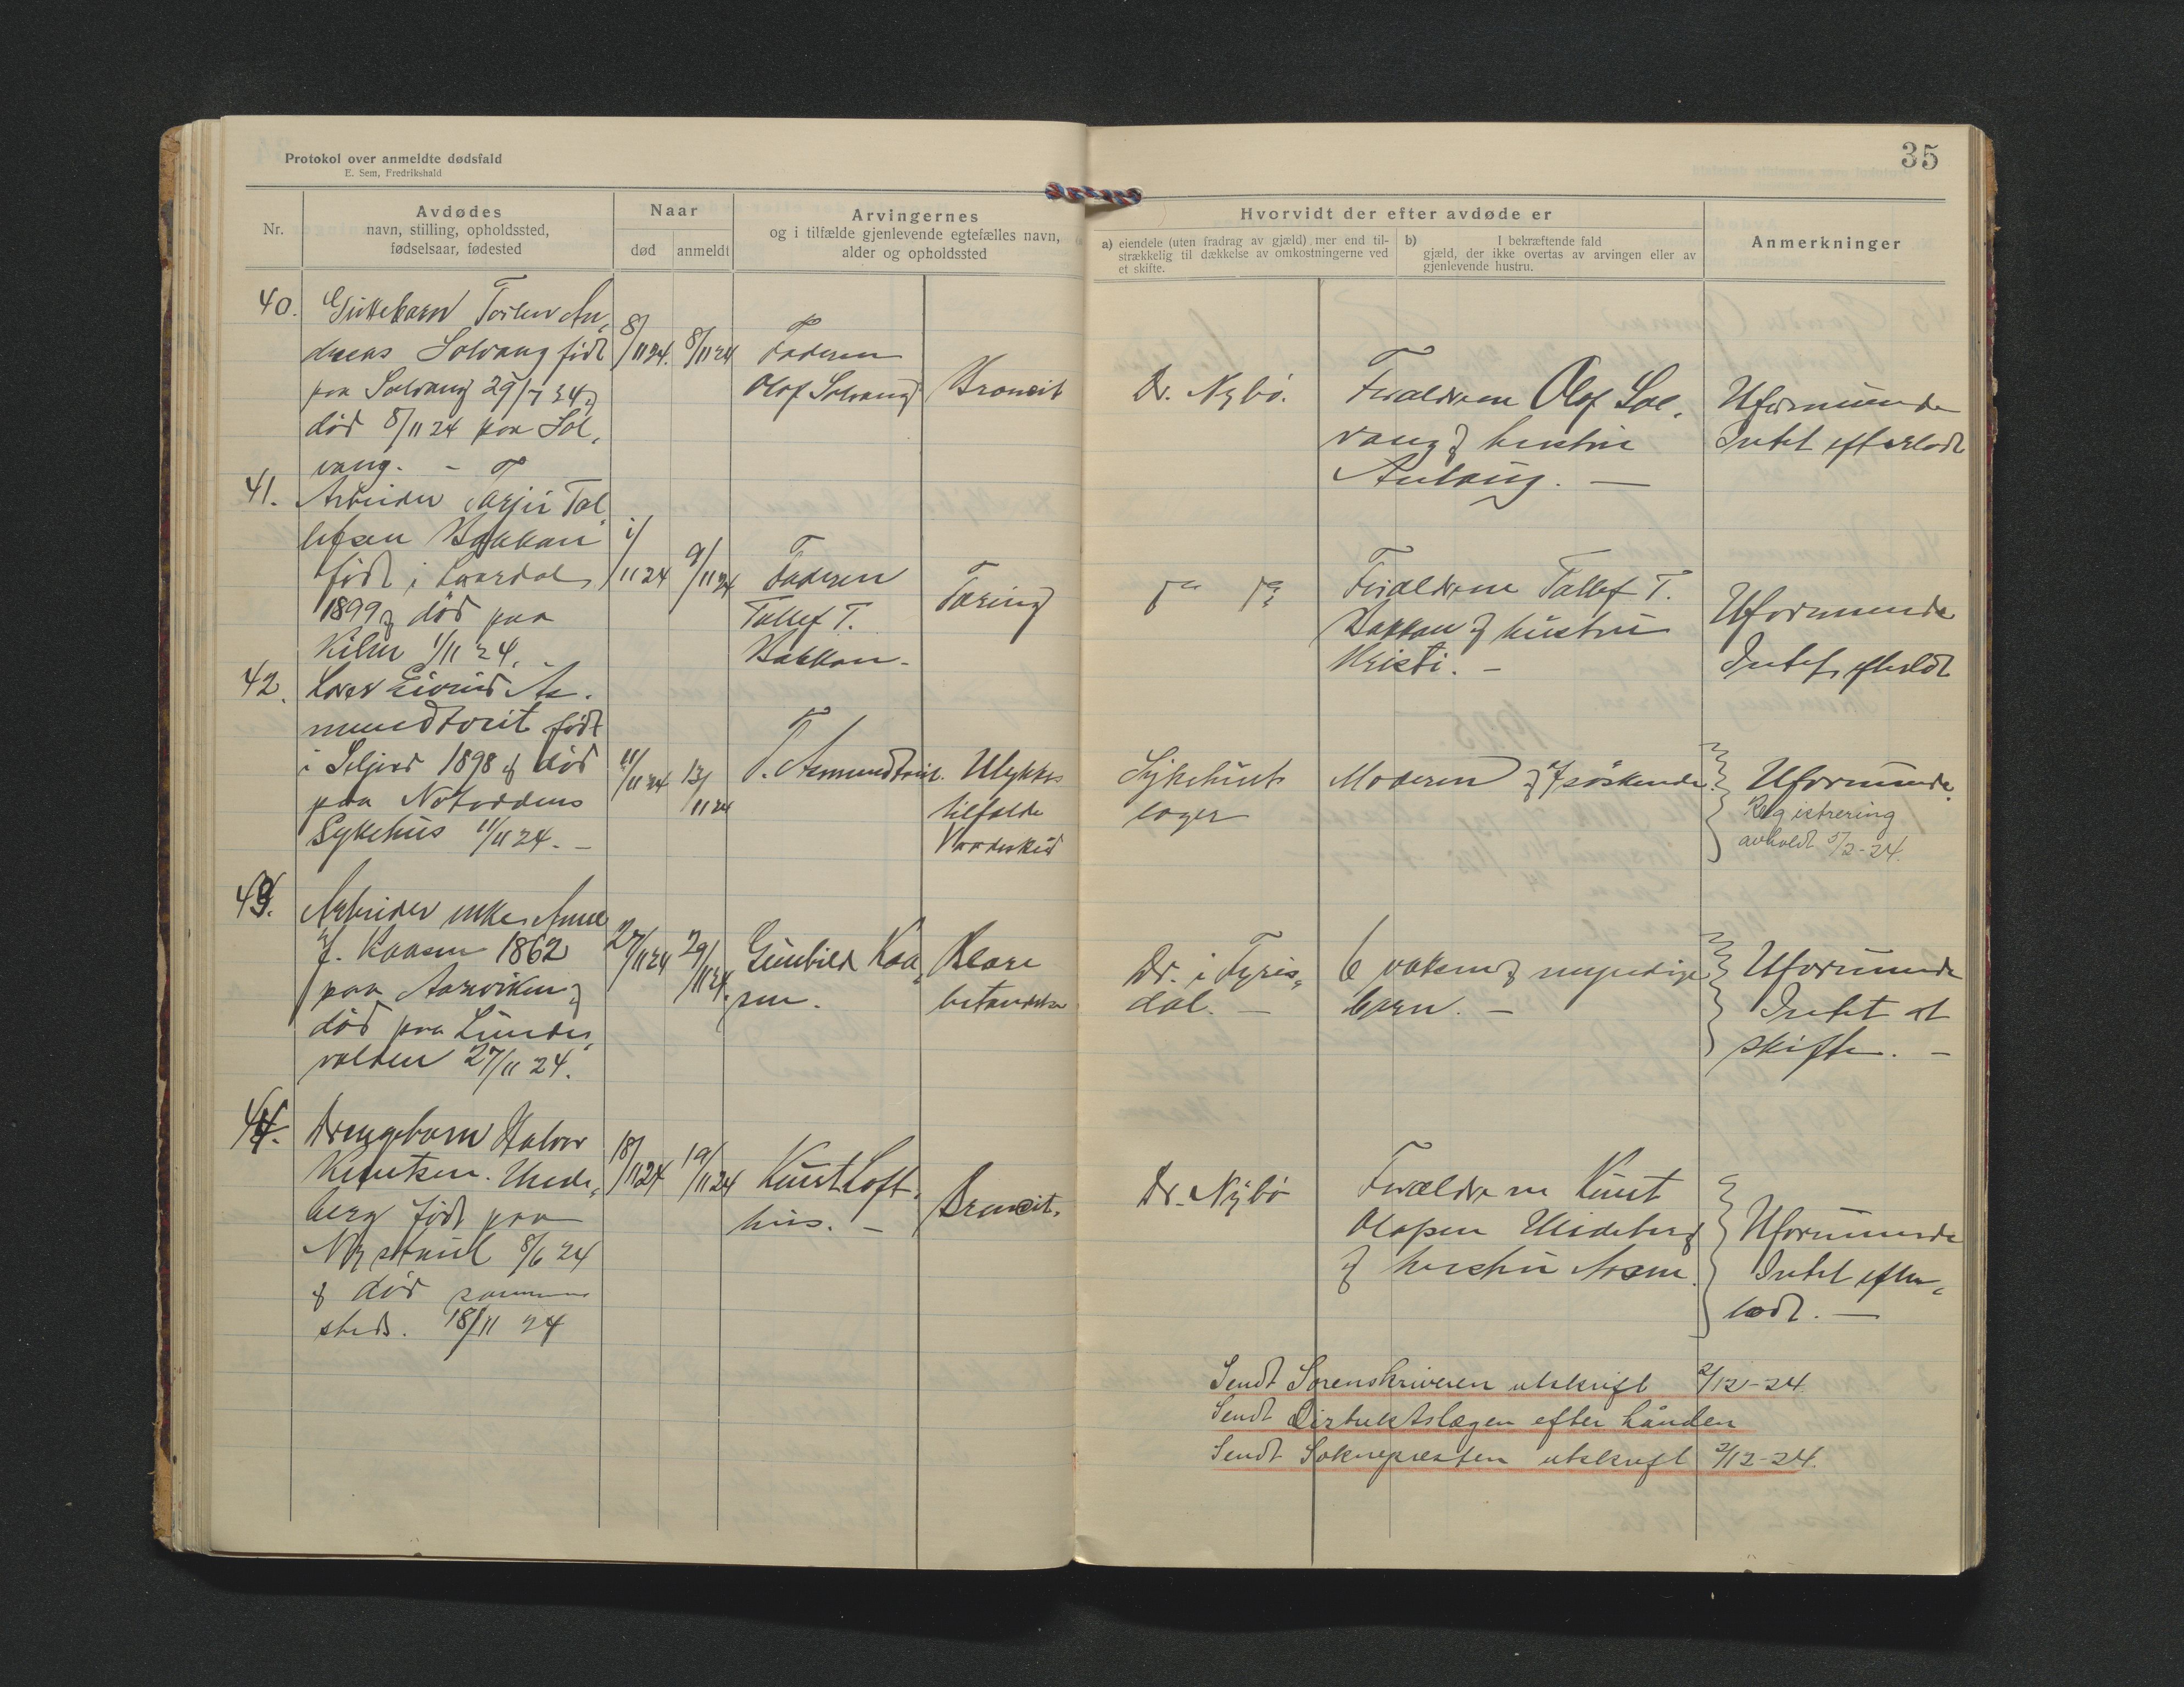 Protokol over anmeldte dødsfald
E. Sem, Fredrikshald
35
Nr.
Avdødes
navn, stilling, opholdssted,
fødselsaar, fødested
Naar
død
anmeldt
Arvingernes
og i tilfælde gjenlevende egtefælles navn,
alder og opholdssted
Hvorvidt der efter avdøde er
a) eiendele (uten fradrag av gjæld) mer end til-
strækkelig til dækkelse av omkostningerne ved
et skifte.
b) I bekræftende fald
gjæld, der ikke overtas av arvingen eller av
gjenlevende hustru.
Anmerkninger
40.
An-
dreas Solvang født
paa Solvang 29/7 24 &
død 8/11 24 paa Sol-
vang. -
8/11 24.
8/11 24
Faderen
Olaf Solvang
Broncit
Dr. Nybø.
Forældrene Olaf Sol-
vang & hustru
Aslaug. -
Uformuende
Intet efterladt
41.
Arbeider Tarjei Tal-
lefsen Bakkan
født i Laardal
1899 & død paa
Kilen 1/11 24. -
1/11 24
9/11 24
Faderen
Tallef T.
Bakkan.
Tæring
do do
Forældrene Tallef T.
Bakkan & hustru
Kristi. -
Uformuende
Intet efterladt
42.
Eivind As-
mundtveit født
i Seljord 1898 & død
paa Notoddens
Sykehus 11/11 24. -
11/11 24
13/11 24
T. Asmundtveit.
Ulykkes
tilfælde
Vaadeskud
Sykehus
læger
Moderen & 7 søskende.
Uformuende
Registrering
avholdt 5/2-24.
43.
Arbeider enke Anne
J. Kaasen 1862
paa Aarviken &
død paa Linde-
valden 27/11 24.
27/11 24
29/11 24.
Gunhild Kaa-
sen.
Blære
betændelse
Dr. i Fyris-
dal. -
6 voksne & myndige
børn. -
Uformuende
Intet at
skifte. -
44.
Drengebarn Halvor
Knutsen. Unde-
berg født paa
Nystaul 8/6 24
& død samme-
steds. 18/11 24
18/11 24
19/11 24
Knut Loft-
hus. -
Broncit.
Dr. Nybø
Forældrene Knut
Olavsen Undeberg
& hustru Aasne.
Uformuende
Intet efter-
ladt. -
Sendt Sorenskriveren utskrift 2/12-24
Sendt Distriktslægen efter hånden
Sendt Soknepresten utskrift 2/12-24.